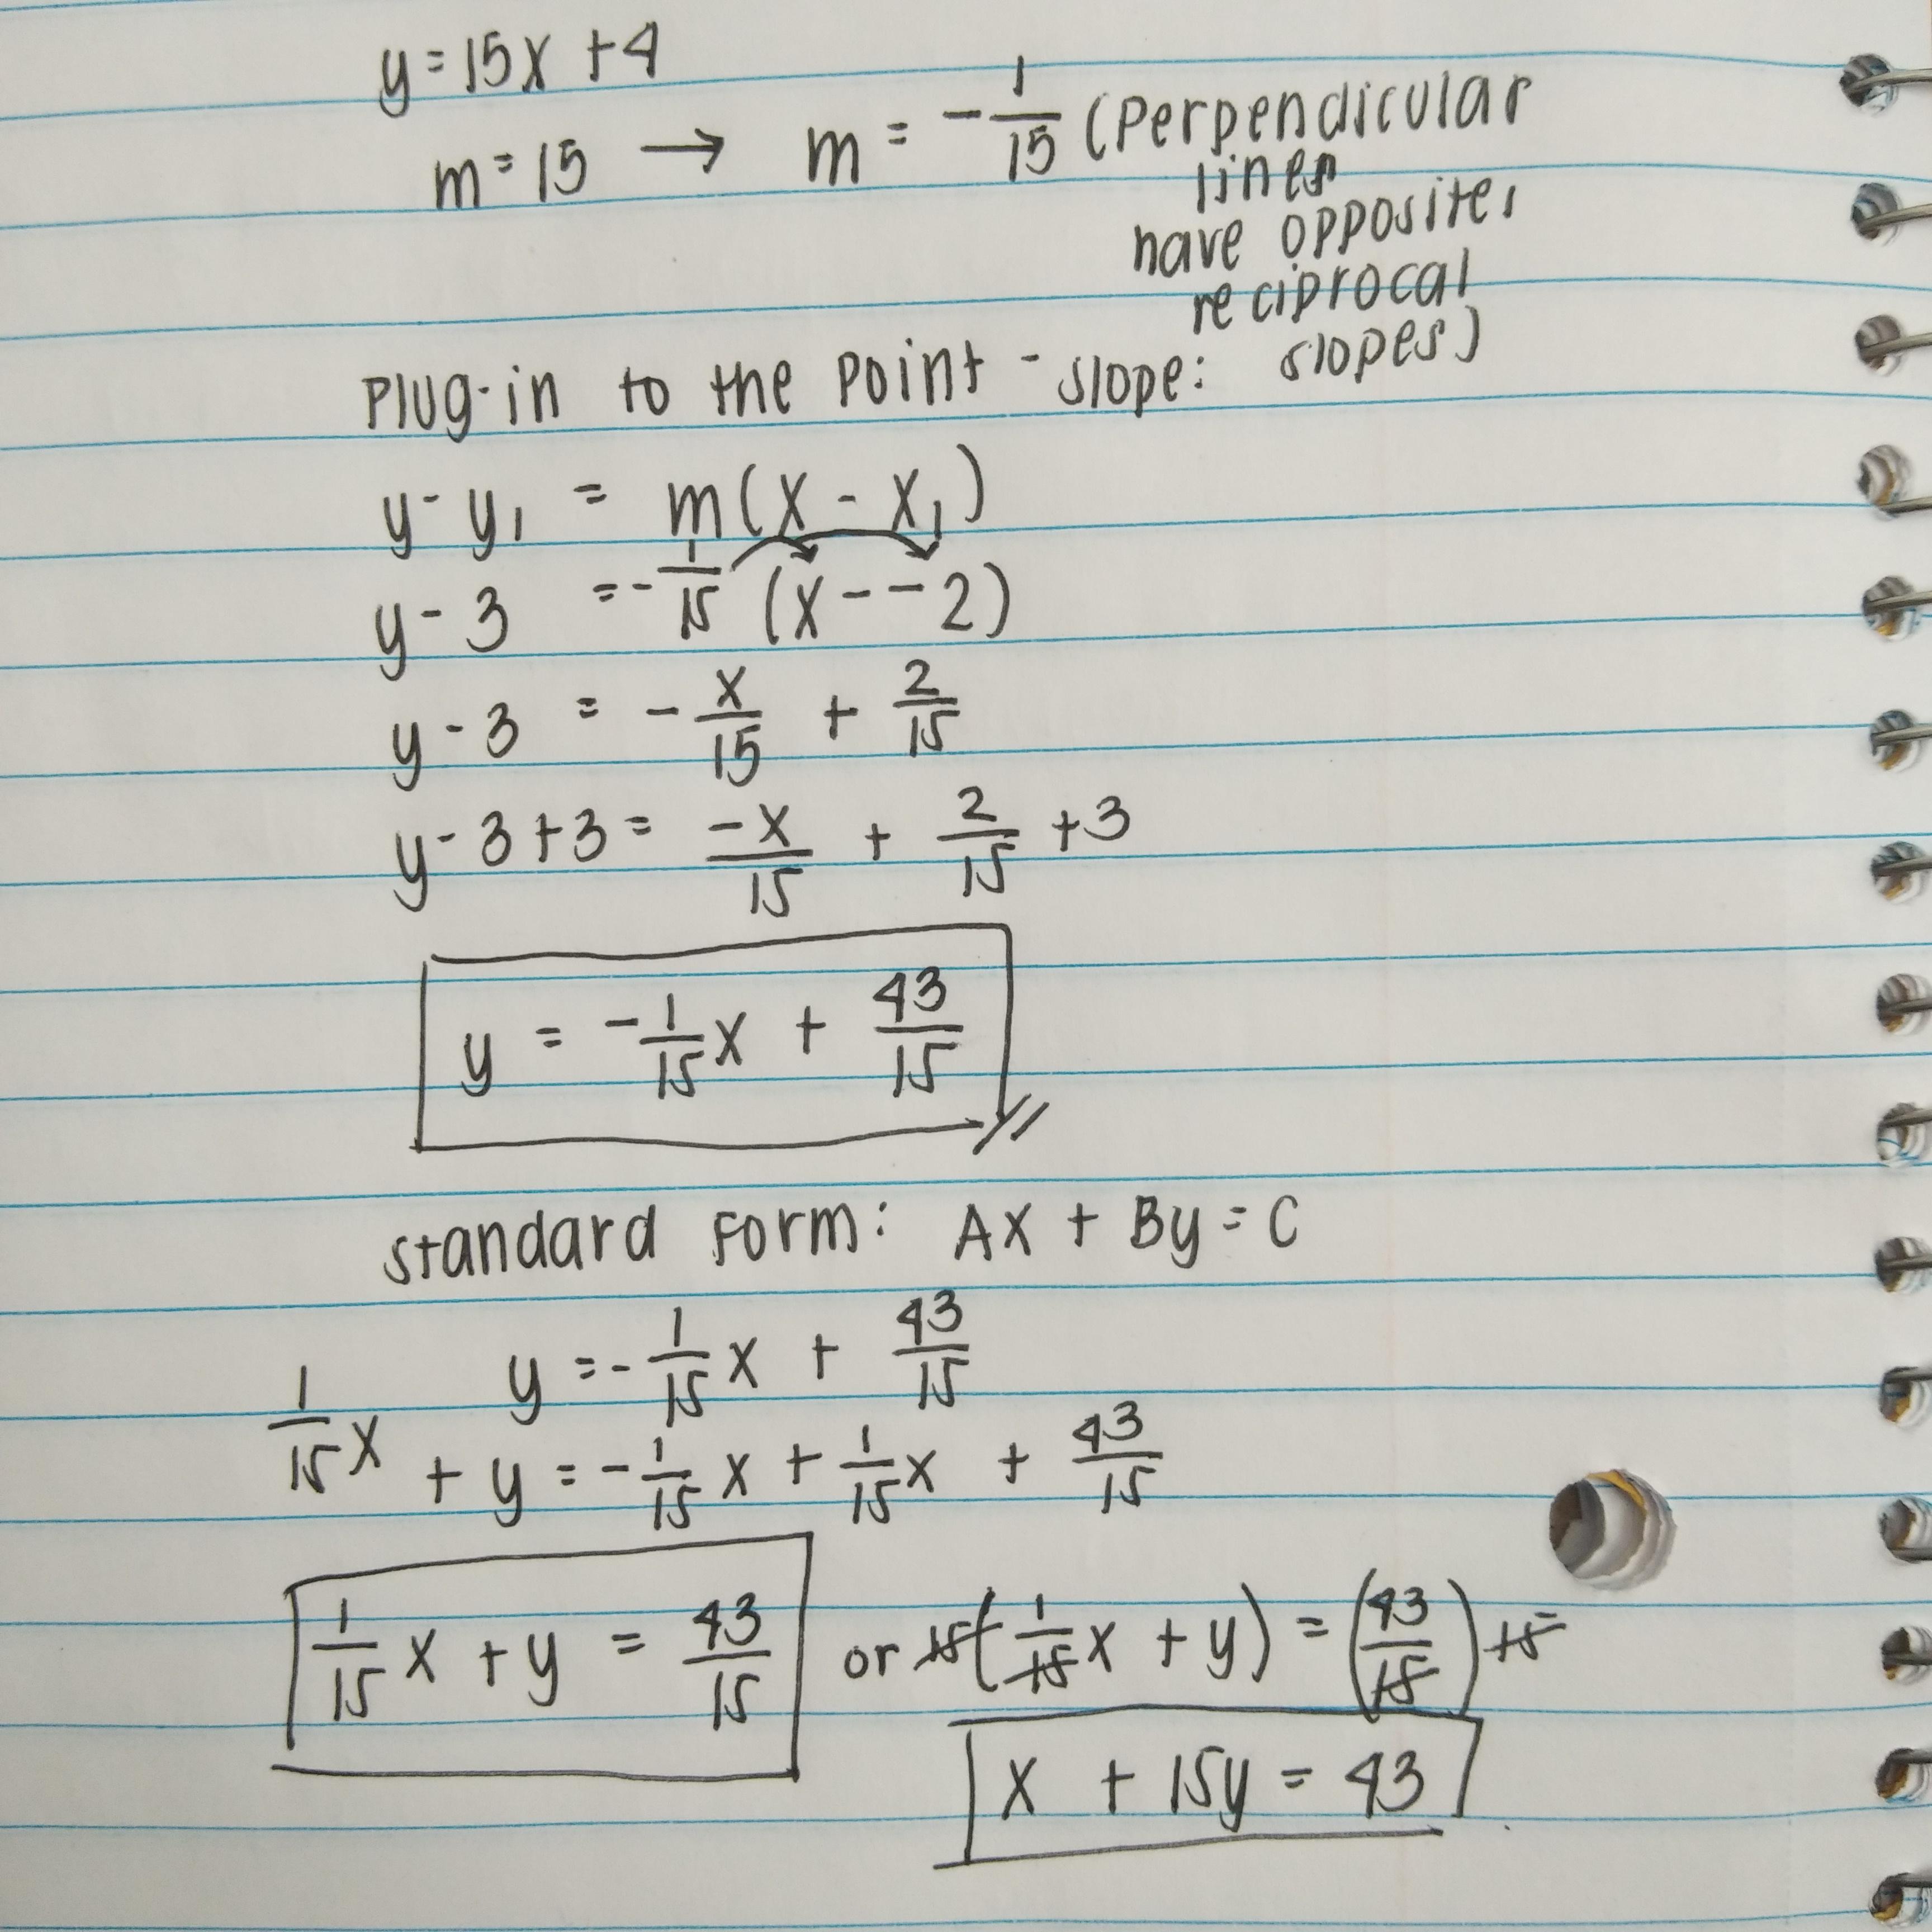 y = 15x + 4
m = 15 → m = -1/15 (Perpendicular
lines
have opposite,
reciprocal
slopes)
Plug-in to the point-slope:
y - y₁ = m(x - x₁)
y - 3 = -1/15 (x - -2)
y - 3 = -x/15 + 2/15
y - 3 + 3 = -x/15 + 2/15 + 3
y = -1/15 x + 43/15
standard form: Ax + By = C
y = -1/15 x + 43/15
1/15 x + y = -1/15 x + 1/15 x + 43/15
1/15 x + y = 43/15 or 15(1/15 x + y) = (43/15) 15
x + 15y = 43